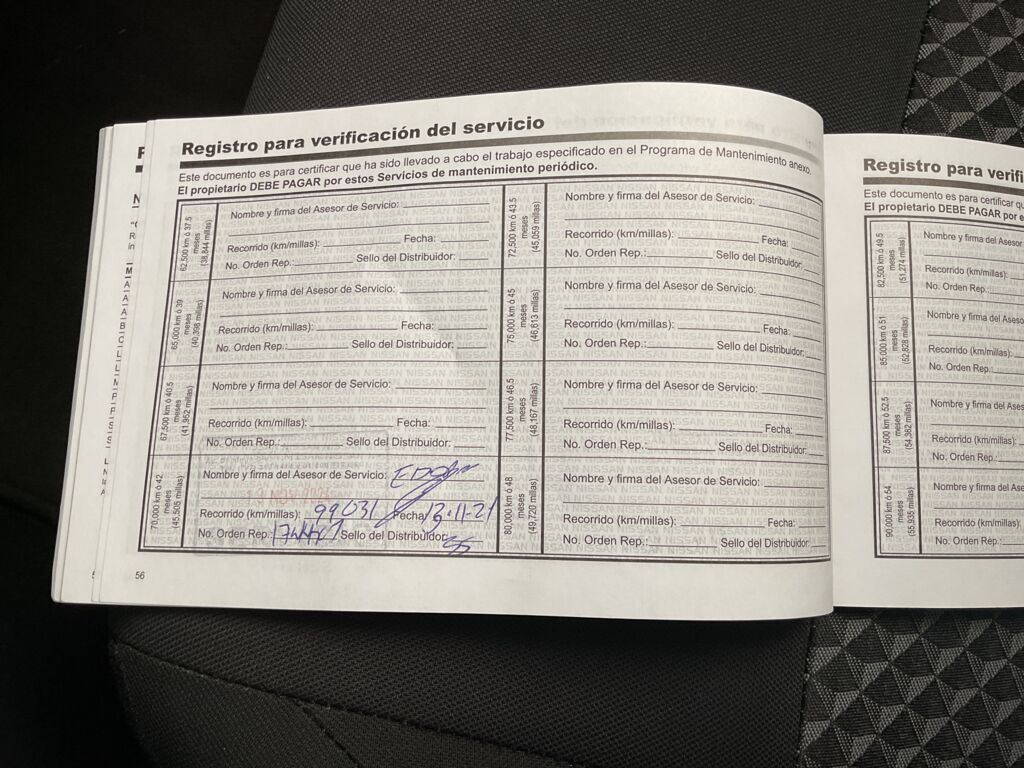 Registro para verificación del servicio
Este documento es para certificar que ha sido llevado a cabo el trabajo especificado en el Programa de Mantenimiento anexo.
El propietario DEBE PAGAR por estos Servicios de mantenimiento periódico.
62,500 km ó 37.5
meses
(38,844 millas)
Nombre y firma del Asesor de Servicio:
Recorrido (km/millas): Fecha:
No. Orden Rep.: Sello del Distribuidor:
65,000 km ó 39
meses
(40,398 millas)
Nombre y firma del Asesor de Servicio:
Recorrido (km/millas): Fecha:
No. Orden Rep.: Sello del Distribuidor:
67,500 km ó 40.5
meses
(41,952 millas)
Nombre y firma del Asesor de Servicio:
Recorrido (km/millas): Fecha:
No. Orden Rep.: Sello del Distribuidor:
70,000 km ó 42
meses
(45,505 millas)
Nombre y firma del Asesor de Servicio:
Recorrido (km/millas): 99031 Fecha: 13-11-21
No. Orden Rep.: Sello del Distribuidor:
72,500 km ó 43.5
meses
(45,059 millas)
Nombre y firma del Asesor de Servicio:
Recorrido (km/millas): Fecha:
No. Orden Rep.: Sello del Distribuidor:
75,000 km ó 45
meses
(46,613 millas)
Nombre y firma del Asesor de Servicio:
Recorrido (km/millas): Fecha:
No. Orden Rep.: Sello del Distribuidor:
77,500 km ó 46.5
meses
(48,167 millas)
Nombre y firma del Asesor de Servicio:
Recorrido (km/millas): Fecha:
No. Orden Rep.: Sello del Distribuidor:
80,000 km ó 48
meses
(49,720 millas)
Nombre y firma del Asesor de Servicio:
Recorrido (km/millas): Fecha:
No. Orden Rep.: Sello del Distribuidor:
56
Registro para verifi
Este documento es para certificar qu
El propietario DEBE PAGAR por e
82,500 km ó 49.5
meses
(51,274 millas)
Nombre y firma del Asesor
Recorrido (km/millas):
No. Orden Rep.:
85,000 km ó 51
meses
(52,828 millas)
Nombre y firma del Aseso
Recorrido (km/millas):
No. Orden Rep.:
87,500 km ó 52.5
meses
(54,382 millas)
Nombre y firma del Aseso
Recorrido (km/millas):
No. Orden Rep.:
90,000 km ó 54
meses
(55,935 millas)
Nombre y firma del Ase
Recorrido (km/millas):
No. Orden Rep.: